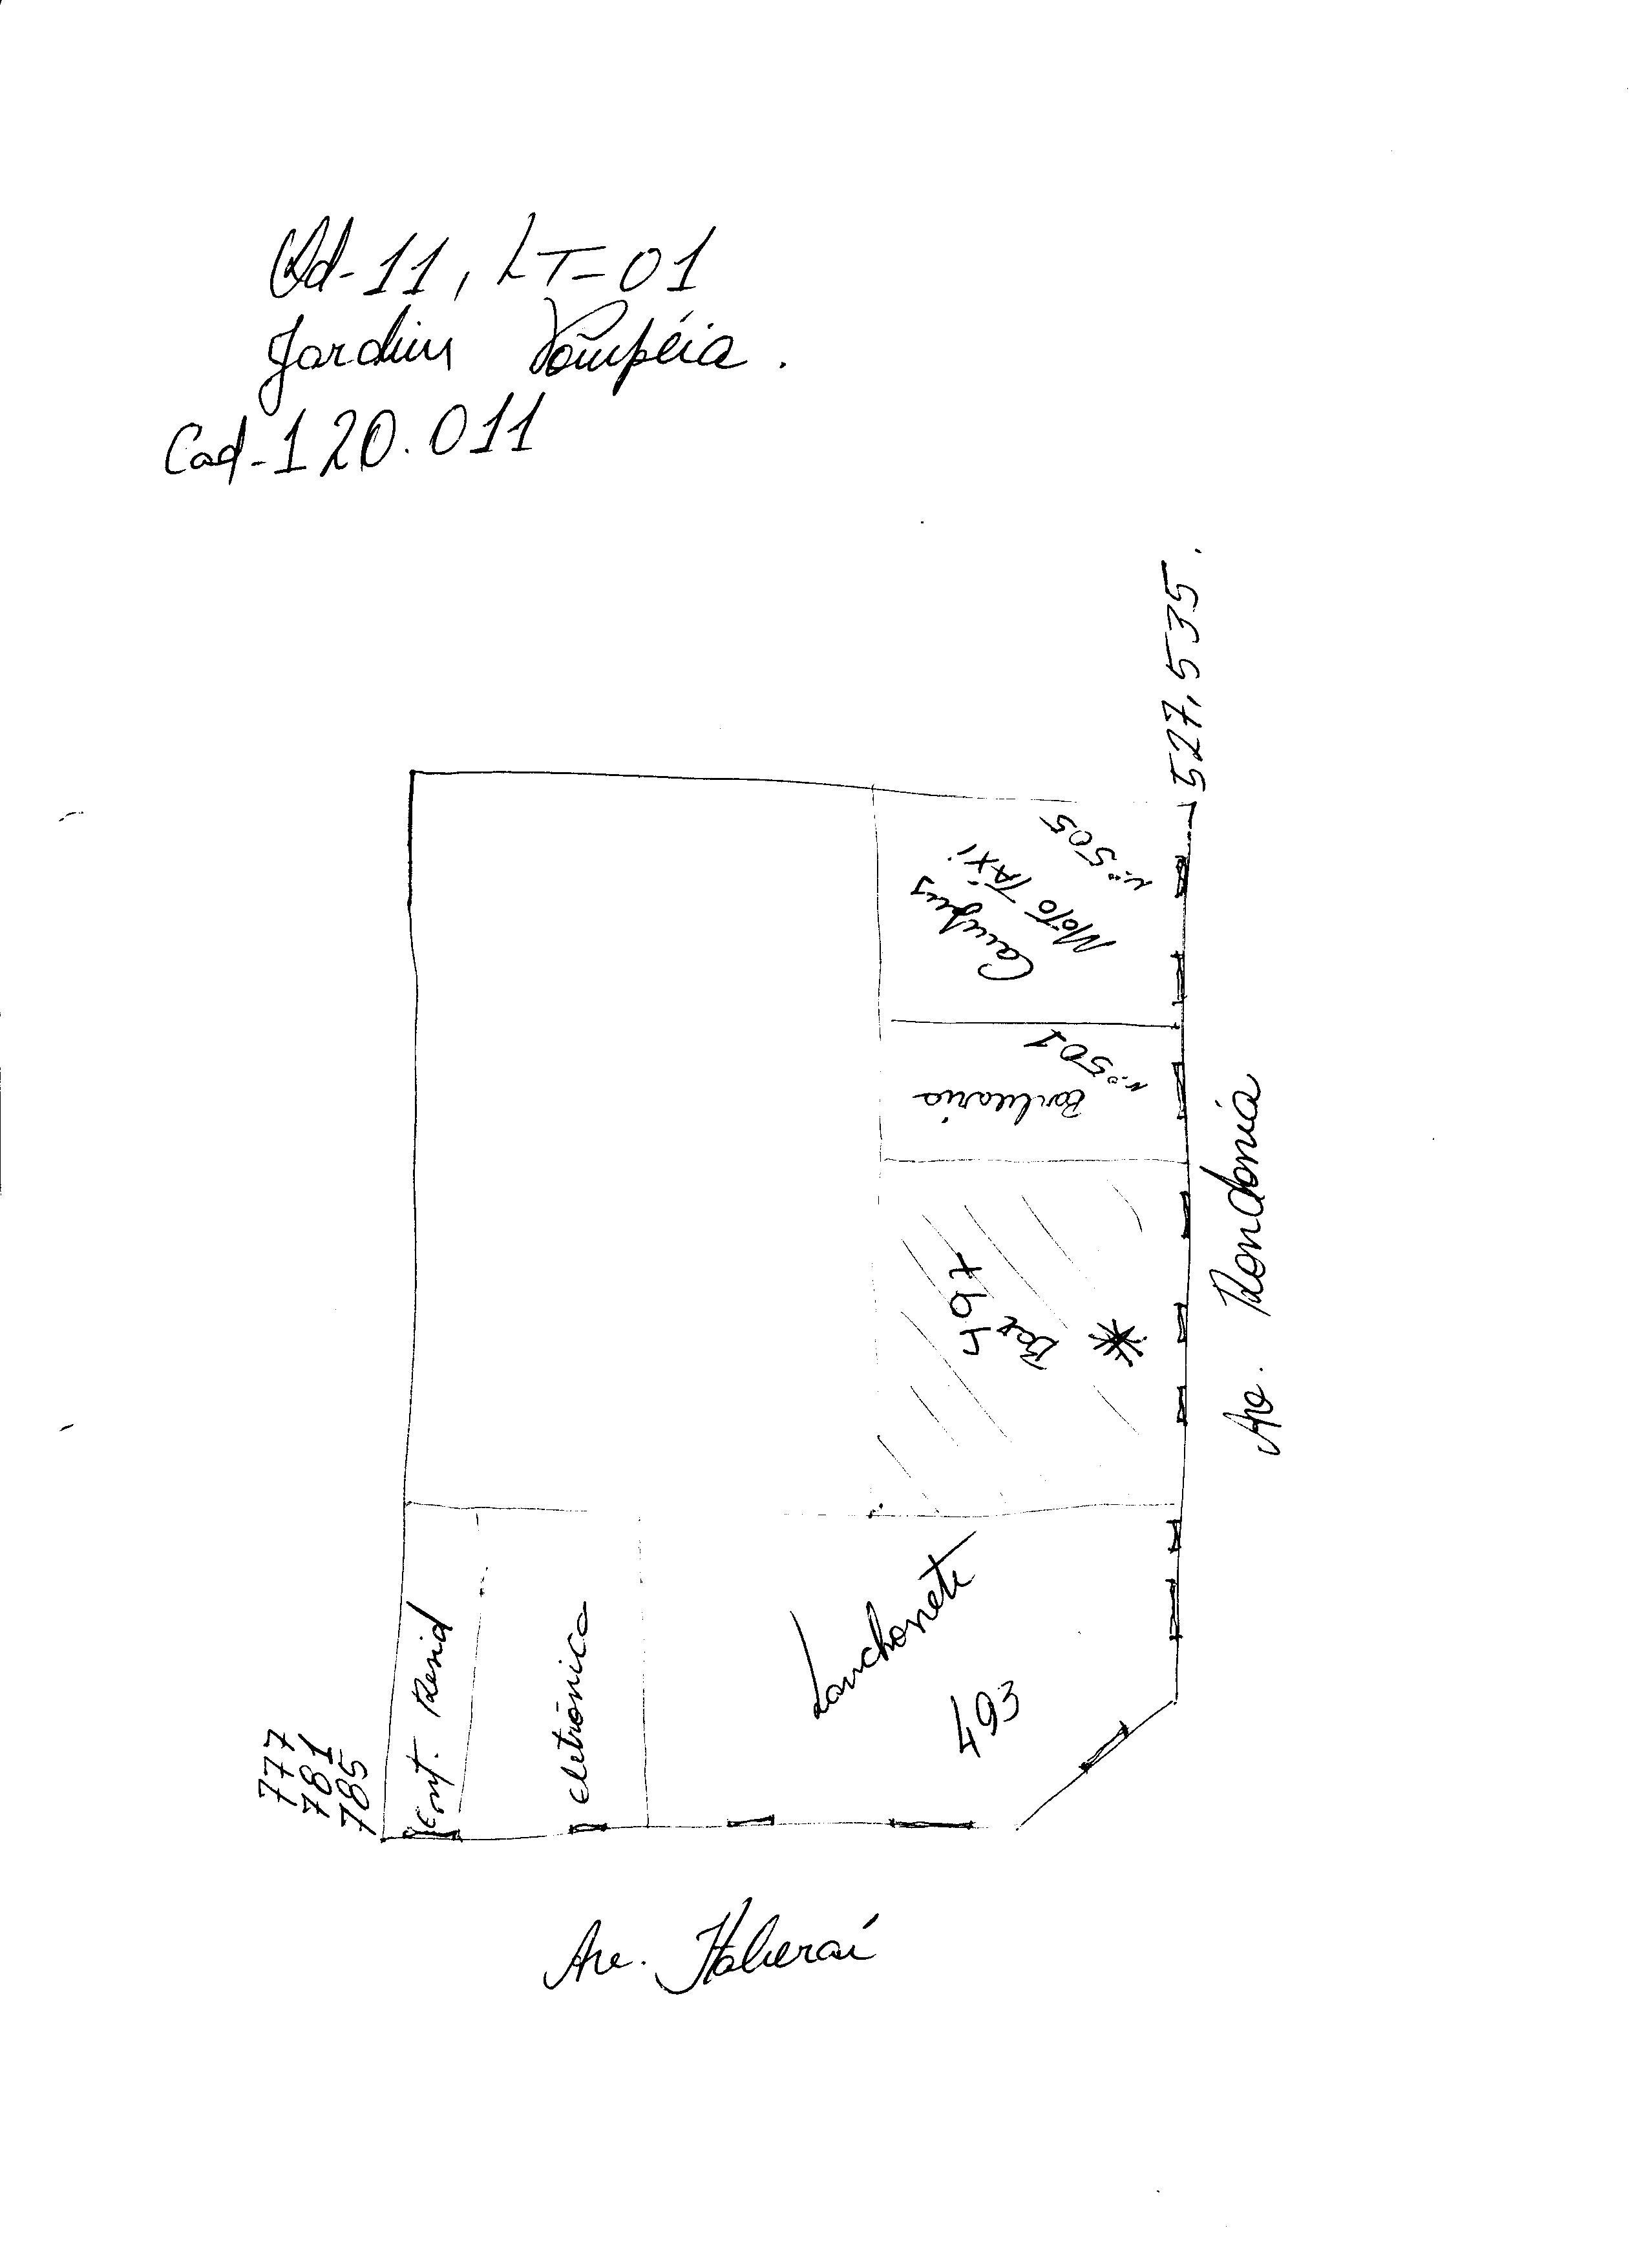 Qd-11, LT-01
Jardim Pompéia.
Cad-120.011
527, 535.
Campus
MOTO TAXI
nº 505
nº 501
Barbearia
497
Bar
Av. Rondonia
Lanchonete
493
eletrônica
Cont. Resid
777
781
785
Av. Itaberaí